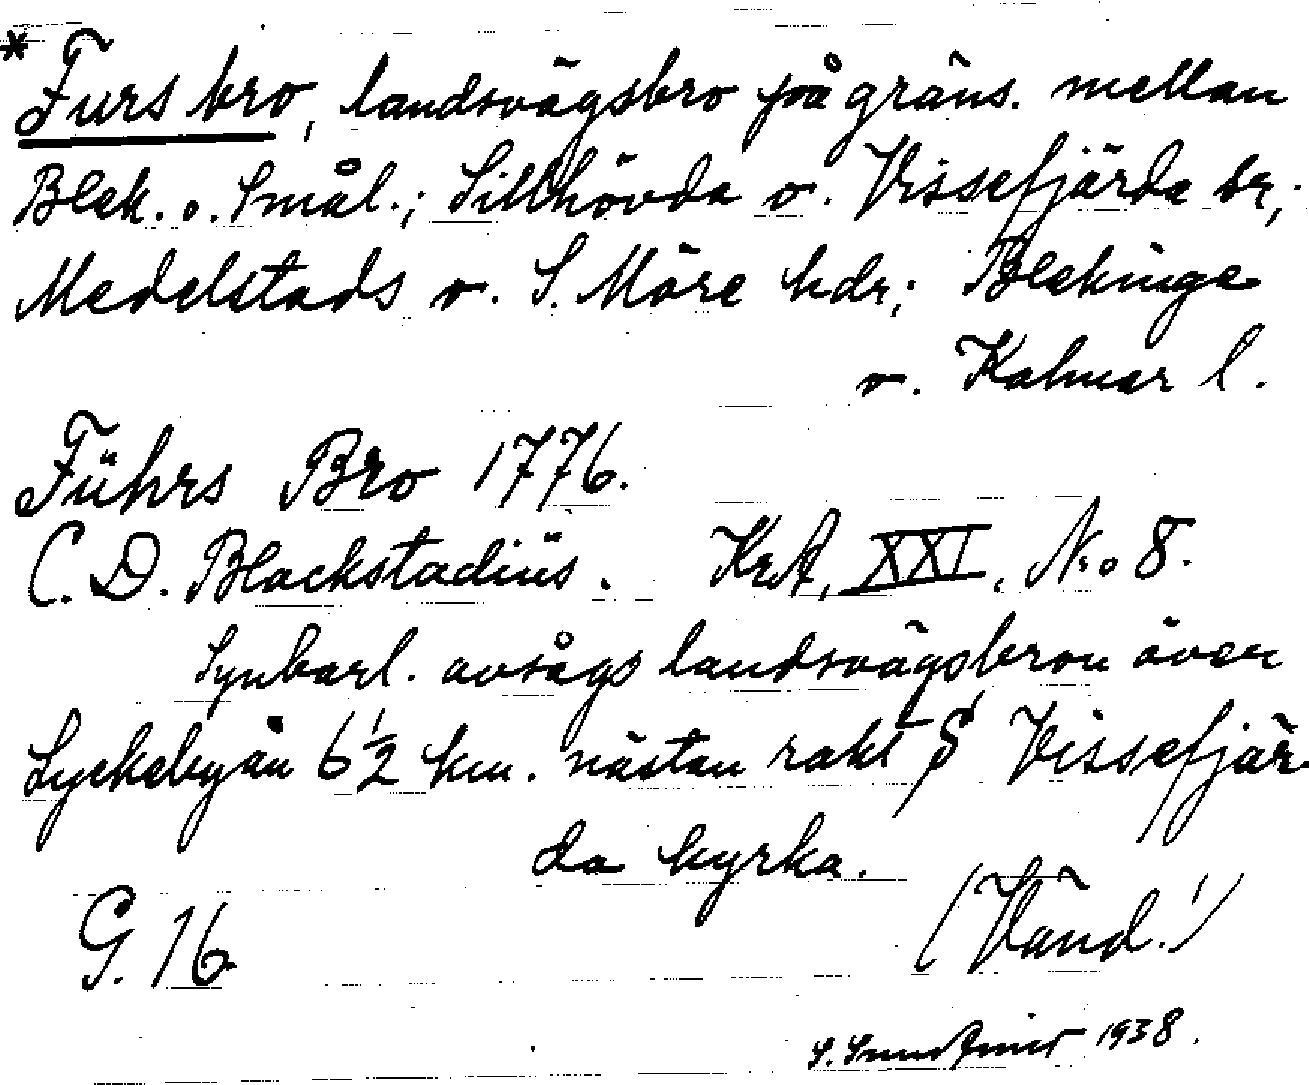 * Furs bro, landsvägsbro på gräns. mellan
Blek. o. Smål.; Sillhövda o. Vissefjärda sr,;
Medelstads o. S. Möre hdr; Blekinge
o. Kalmar l.
Führs Bro 1776.
C. D. Blackstadiüs. KrA, XXI, No 8.
Synbarl. avsågs landsvägsbron över
Lyckebyån 6 1/2 km. nästan rakt S Vissefjär
da kyrka.
G. 16 (Vänd!)
1938.